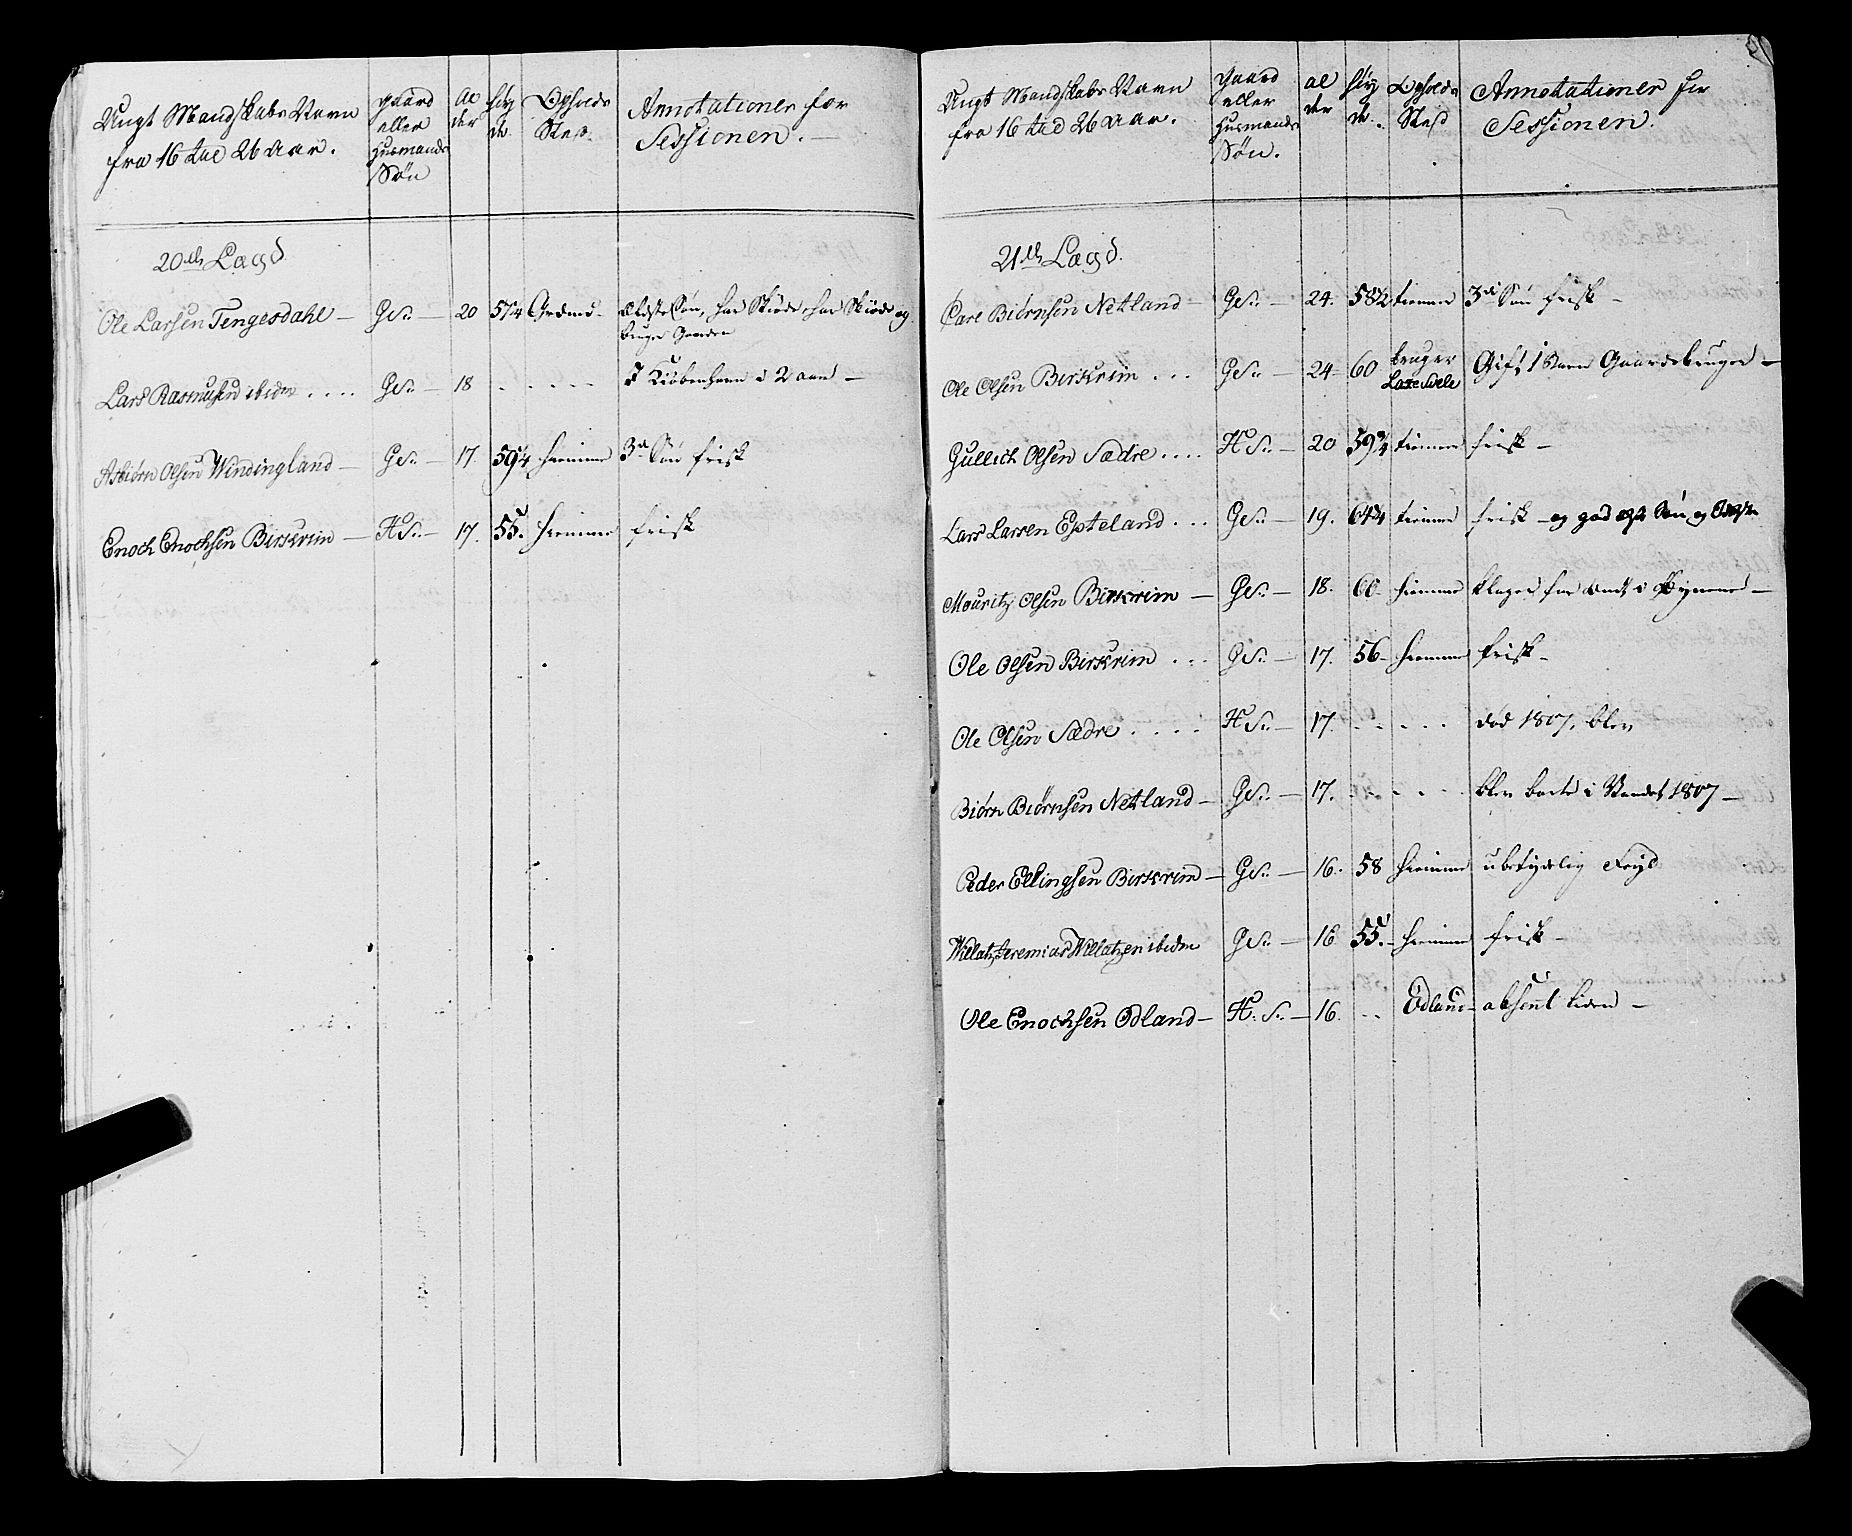 Ungt Mandskabs Navn
fra 16 til 26 Aar.
gaard
eller
Husmands
Søn
Al
der
Høy
de
Opholds
Sted.
Annotationer for
Sessionen.
20de Lægd.
Ole Larsen Tengesdahl — GSn — 20 57 1/4
Ældste Søn, har Skiøde, har Skiøde og
bruger Gaarden
Lars Rasmusen ibidm .... GSn — 18 - - - - - I Kiøbenhavn i 2 aar —
Asbiørn Olsen Windingland — GSn — 17 59 1/4 hiemme 3die Søn frisk
Enoch Enochsen Birkrem — HSn — 17. 55. hiemme frisk
Ungt Mandskabs Navn
fra 16 til 26 Aar.
gaard
eller
Husmands
Søn.
Al
der
Høy
de.
Opholds
Sted
Annotationer for
Sessionen.
21de Lægd.
Carl Biørnsen Netland — GSn — 24. 58 1/2 hiemme 3die Søn frisk —
Ole Olsen Birkrem ... GSn — 24 60 bruger Gift 1 Barn Gaardbruger —
Gullich Olsen Sædre .... HSn — 20 59 3/4 hiemme frisk —
Lars Larsen Epteland ... GSn — 19. 64 3/4 hiemme frisk — og god
Mouritz Olsen Birkrem — GSn — 18. 60 hiemme klager for ondt i Øynene —
Ole Olsen Birkrem ... GSn — 17. 56 — hiemme frisk —
Ole Olsen Sædre .... HSn — 17. - - - - død 1807, blev
Biørn Biørnsen Netland — GSn — 17. - - - - - blev borte i Vandet 1807 —
Peder Ellingsen Birkrem — GSn — 16. 58 hiemme ubetydelig Feyl
Willatz Jeremias Willatzen ibidm GSn — 16 55. — hiemme frisk —
Ole Enochsen Odland — H. Sn — 16. - - Ødland — absent liden —